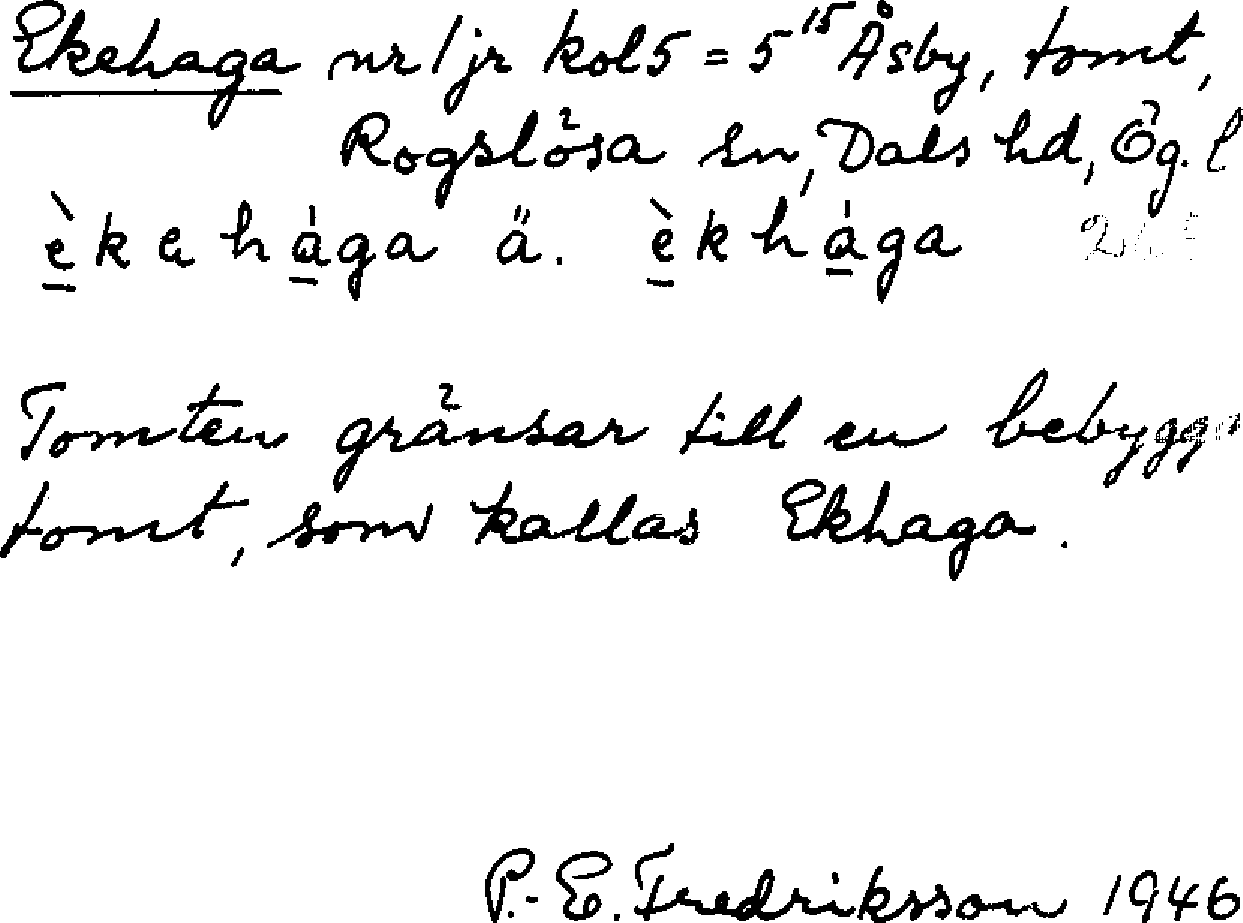 Ekehaga nr 1 jr kol 5 = 5¹⁵ Åsby, tomt,
Rogslösa sn, Dals hd, Ög. l
èkehága ä. èkhága
Tomten gränsar till en
tomt, som kallas Ekhaga.
P.-E. Fredriksson 1946